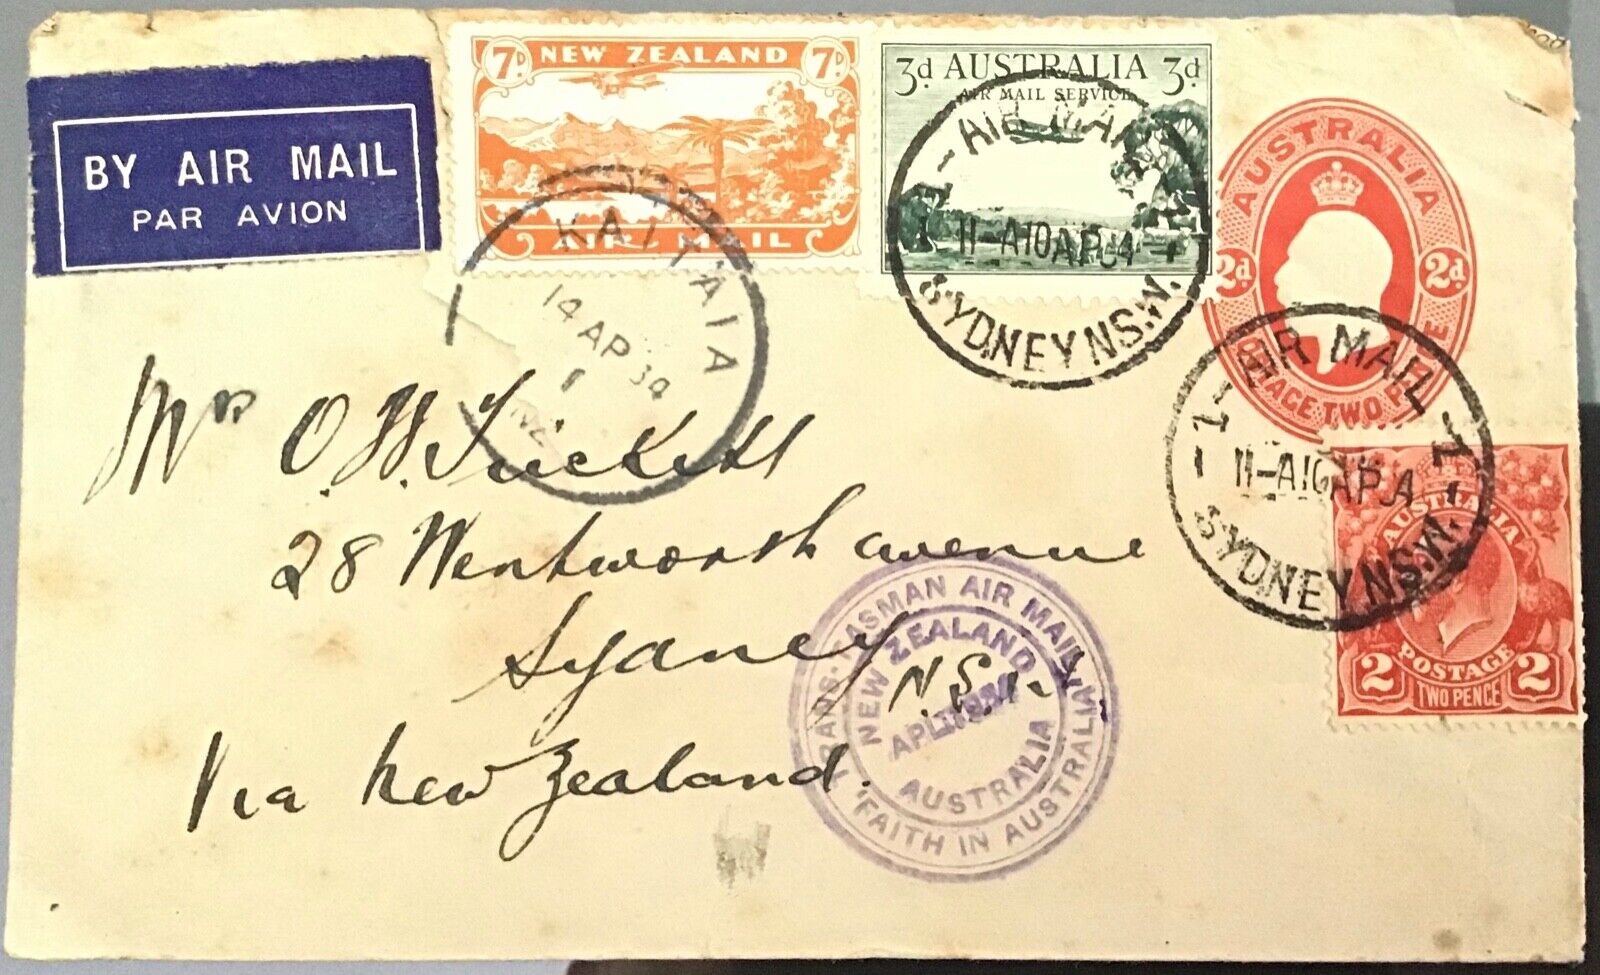 BY AIR MAIL
PAR AVION
7D NEW ZEALAND 7D
AIR MAIL
3d AUSTRALIA 3d
AIR MAIL SERVICE
AUSTRALIA
2d 2d
POSTAGE TWO PENCE
KAITAIA
14 AP 34
NZ
1 - AIR MAIL - 1
11-A10AP34
SYDNEY N.S.W.
1 - AIR MAIL - 1
11-A10AP34
SYDNEY N.S.W.
AUSTRALIA
POSTAGE
2 TWO PENCE 2
Mr O. W. Trickett
28 Wentworth avenue
Sydney
N.S.W.
Via New Zealand.
TRANS-TASMAN AIR MAIL
NEW ZEALAND
AUSTRALIA
'FAITH IN AUSTRALIA'